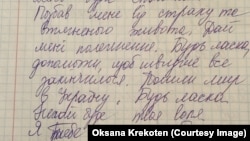 Позбав мене від страху та
втомленого живота. Дай
мені полегшення. Будь ласка,
допоможи, щоб швидше все
закінчилося. Поверни мир
в Україну. Будь ласка
Нехай буде твоя воля
Я Тебе
Oksana Krekoten (Courtesy Image)